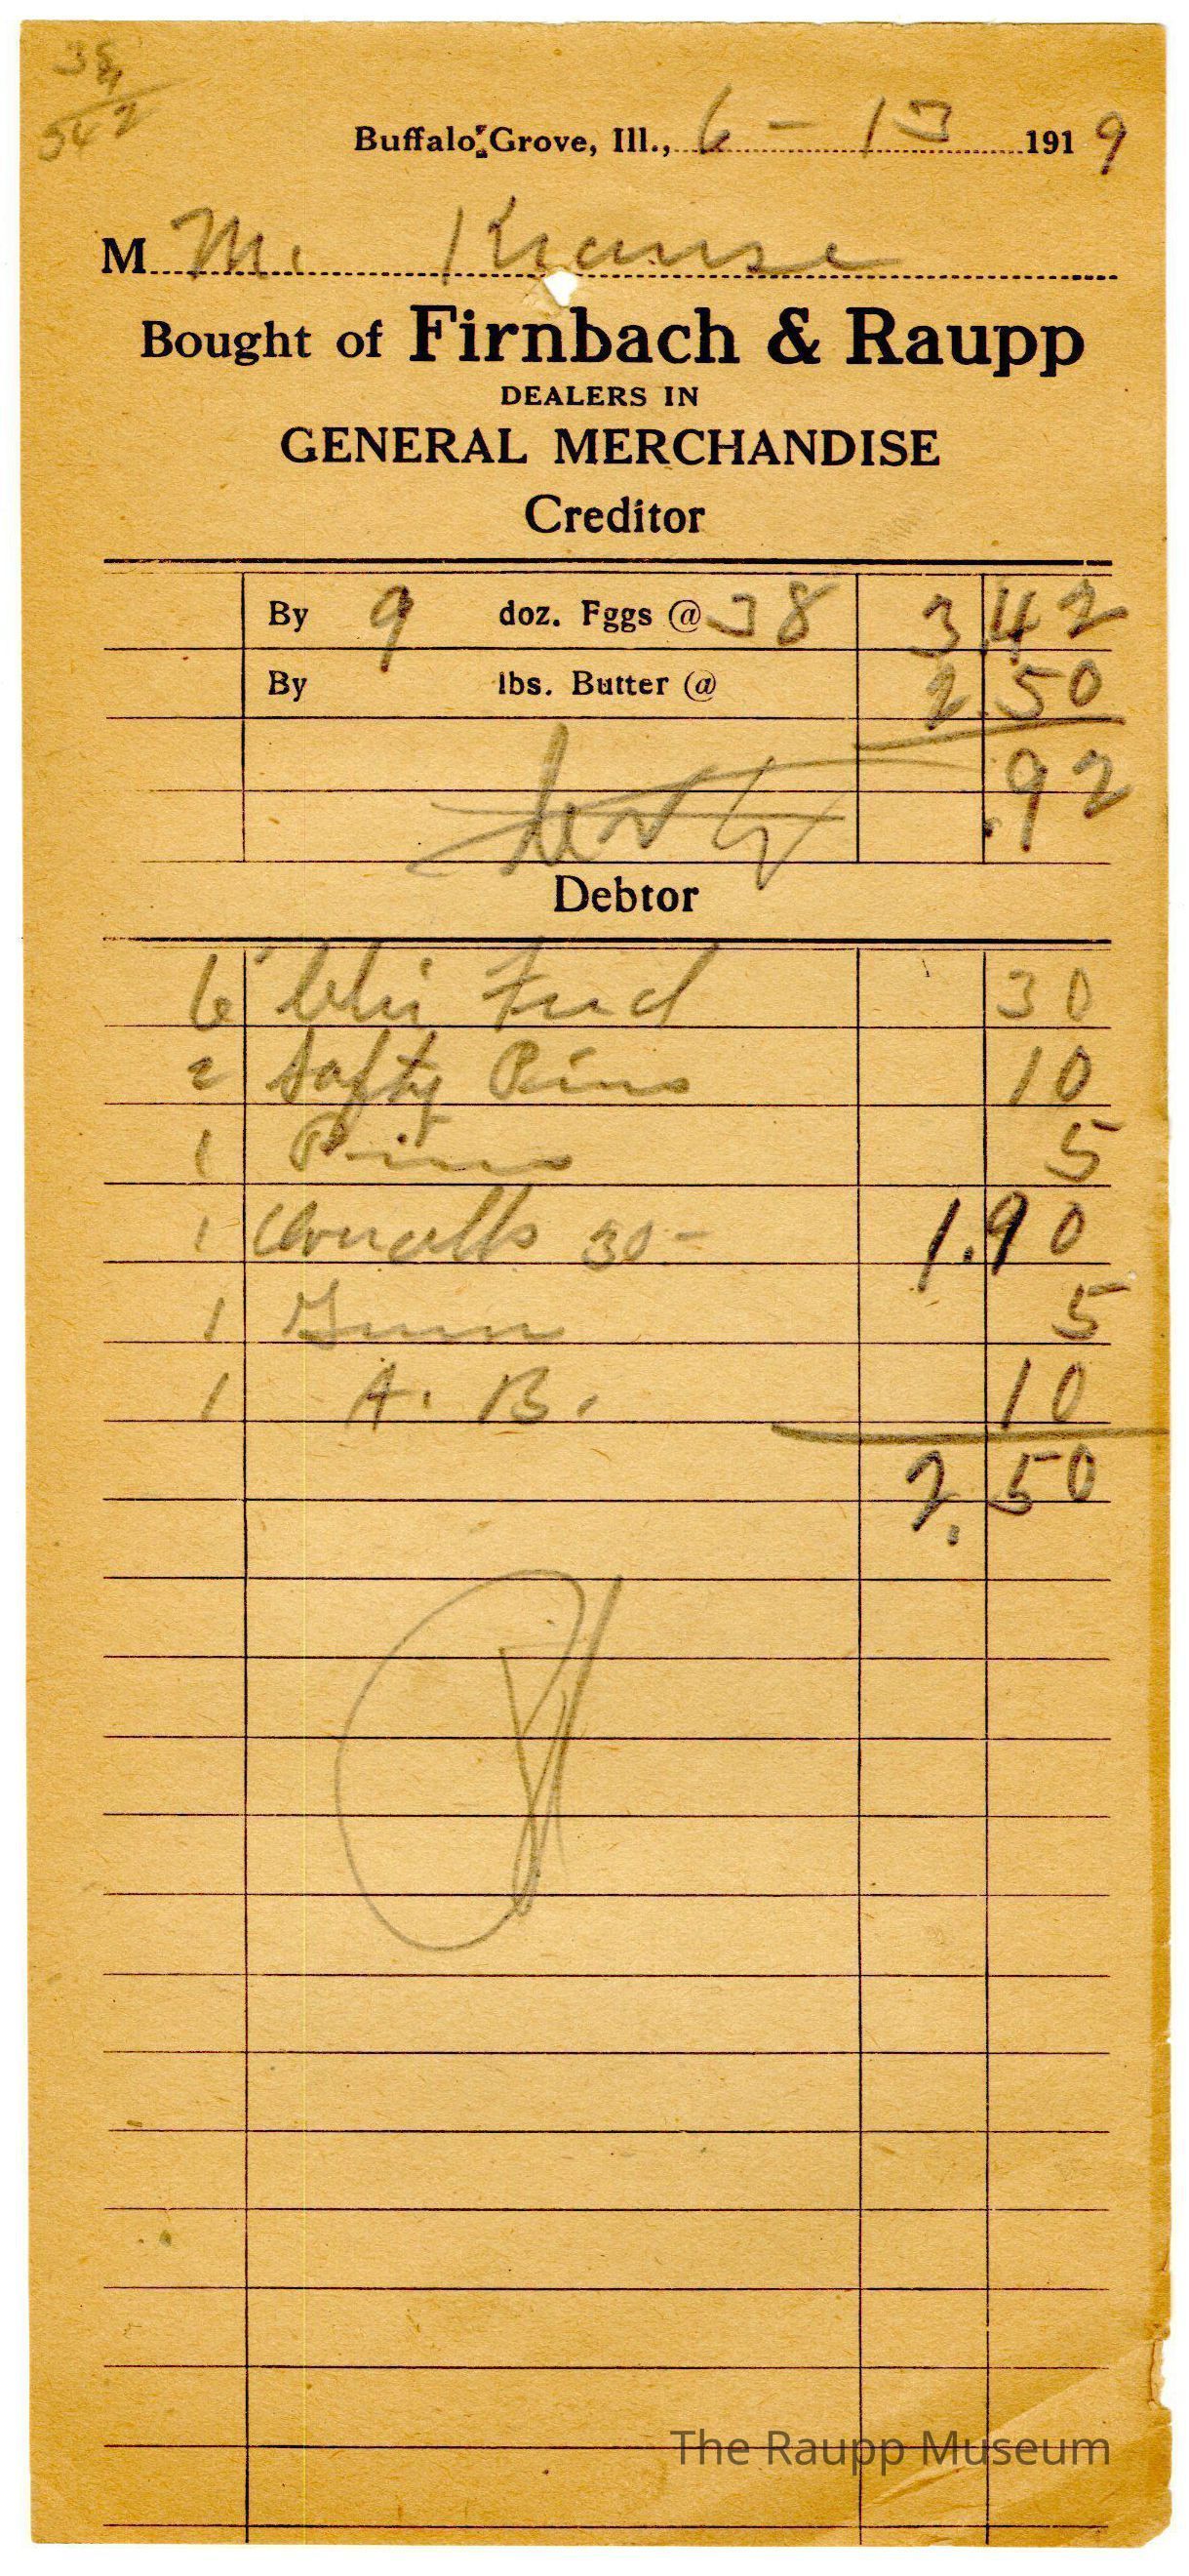 38
9
342
Buffalo Grove, Ill., 6 - 13 1919
M M. Krause
Bought of Firnbach & Raupp
DEALERS IN
GENERAL MERCHANDISE
Creditor
By 9 doz. Fggs @ 38 3 42
By lbs. Butter @ 2.50
.92
Debtor
6 Chi Feed 30
2 Safty Pins 10
1 Pins 5
1 Overalls 30- 1.90
1 Gum 5
1 A. B. 10
2.50
The Raupp Museum